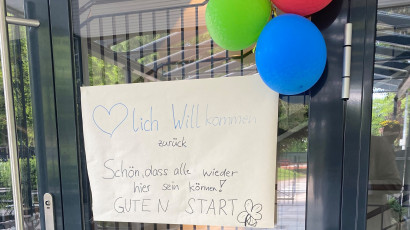 lich Willkommen
zurück
Schön, dass alle wieder
hier sein können!
GUTEN START